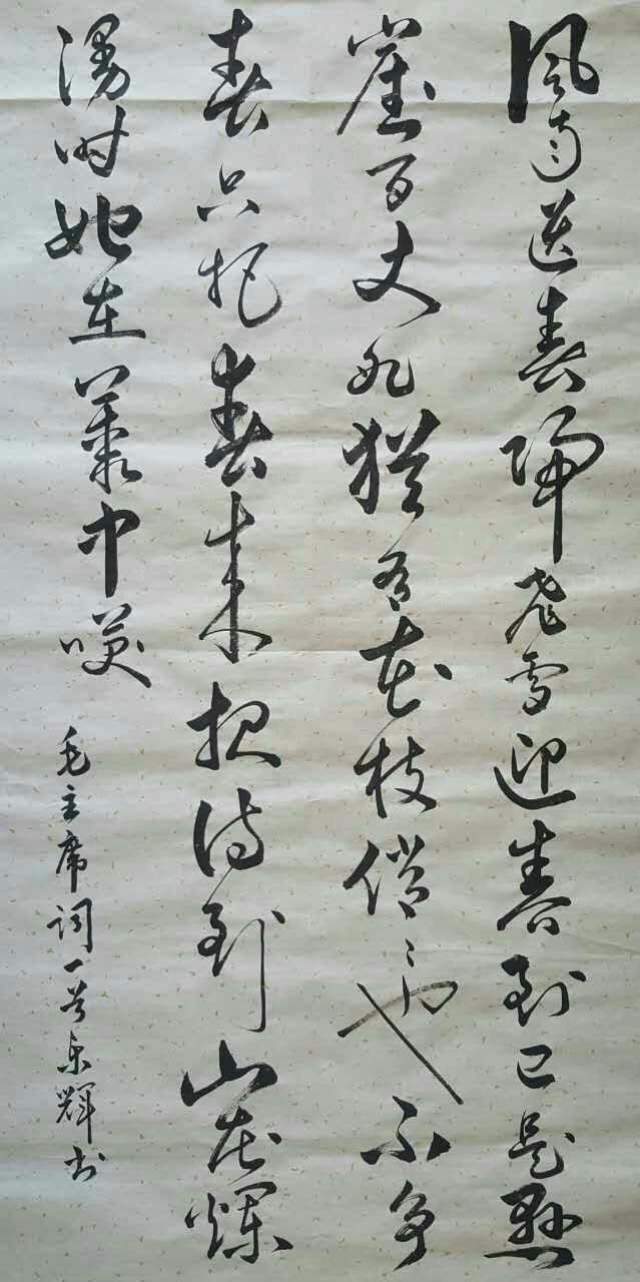 風雨送春歸飛雪迎春到已是懸
崖百丈冰猶有花枝俏〻也不争
春只把春来报待到山花爛
漫时她在叢中咲
毛主席词一首 輝书